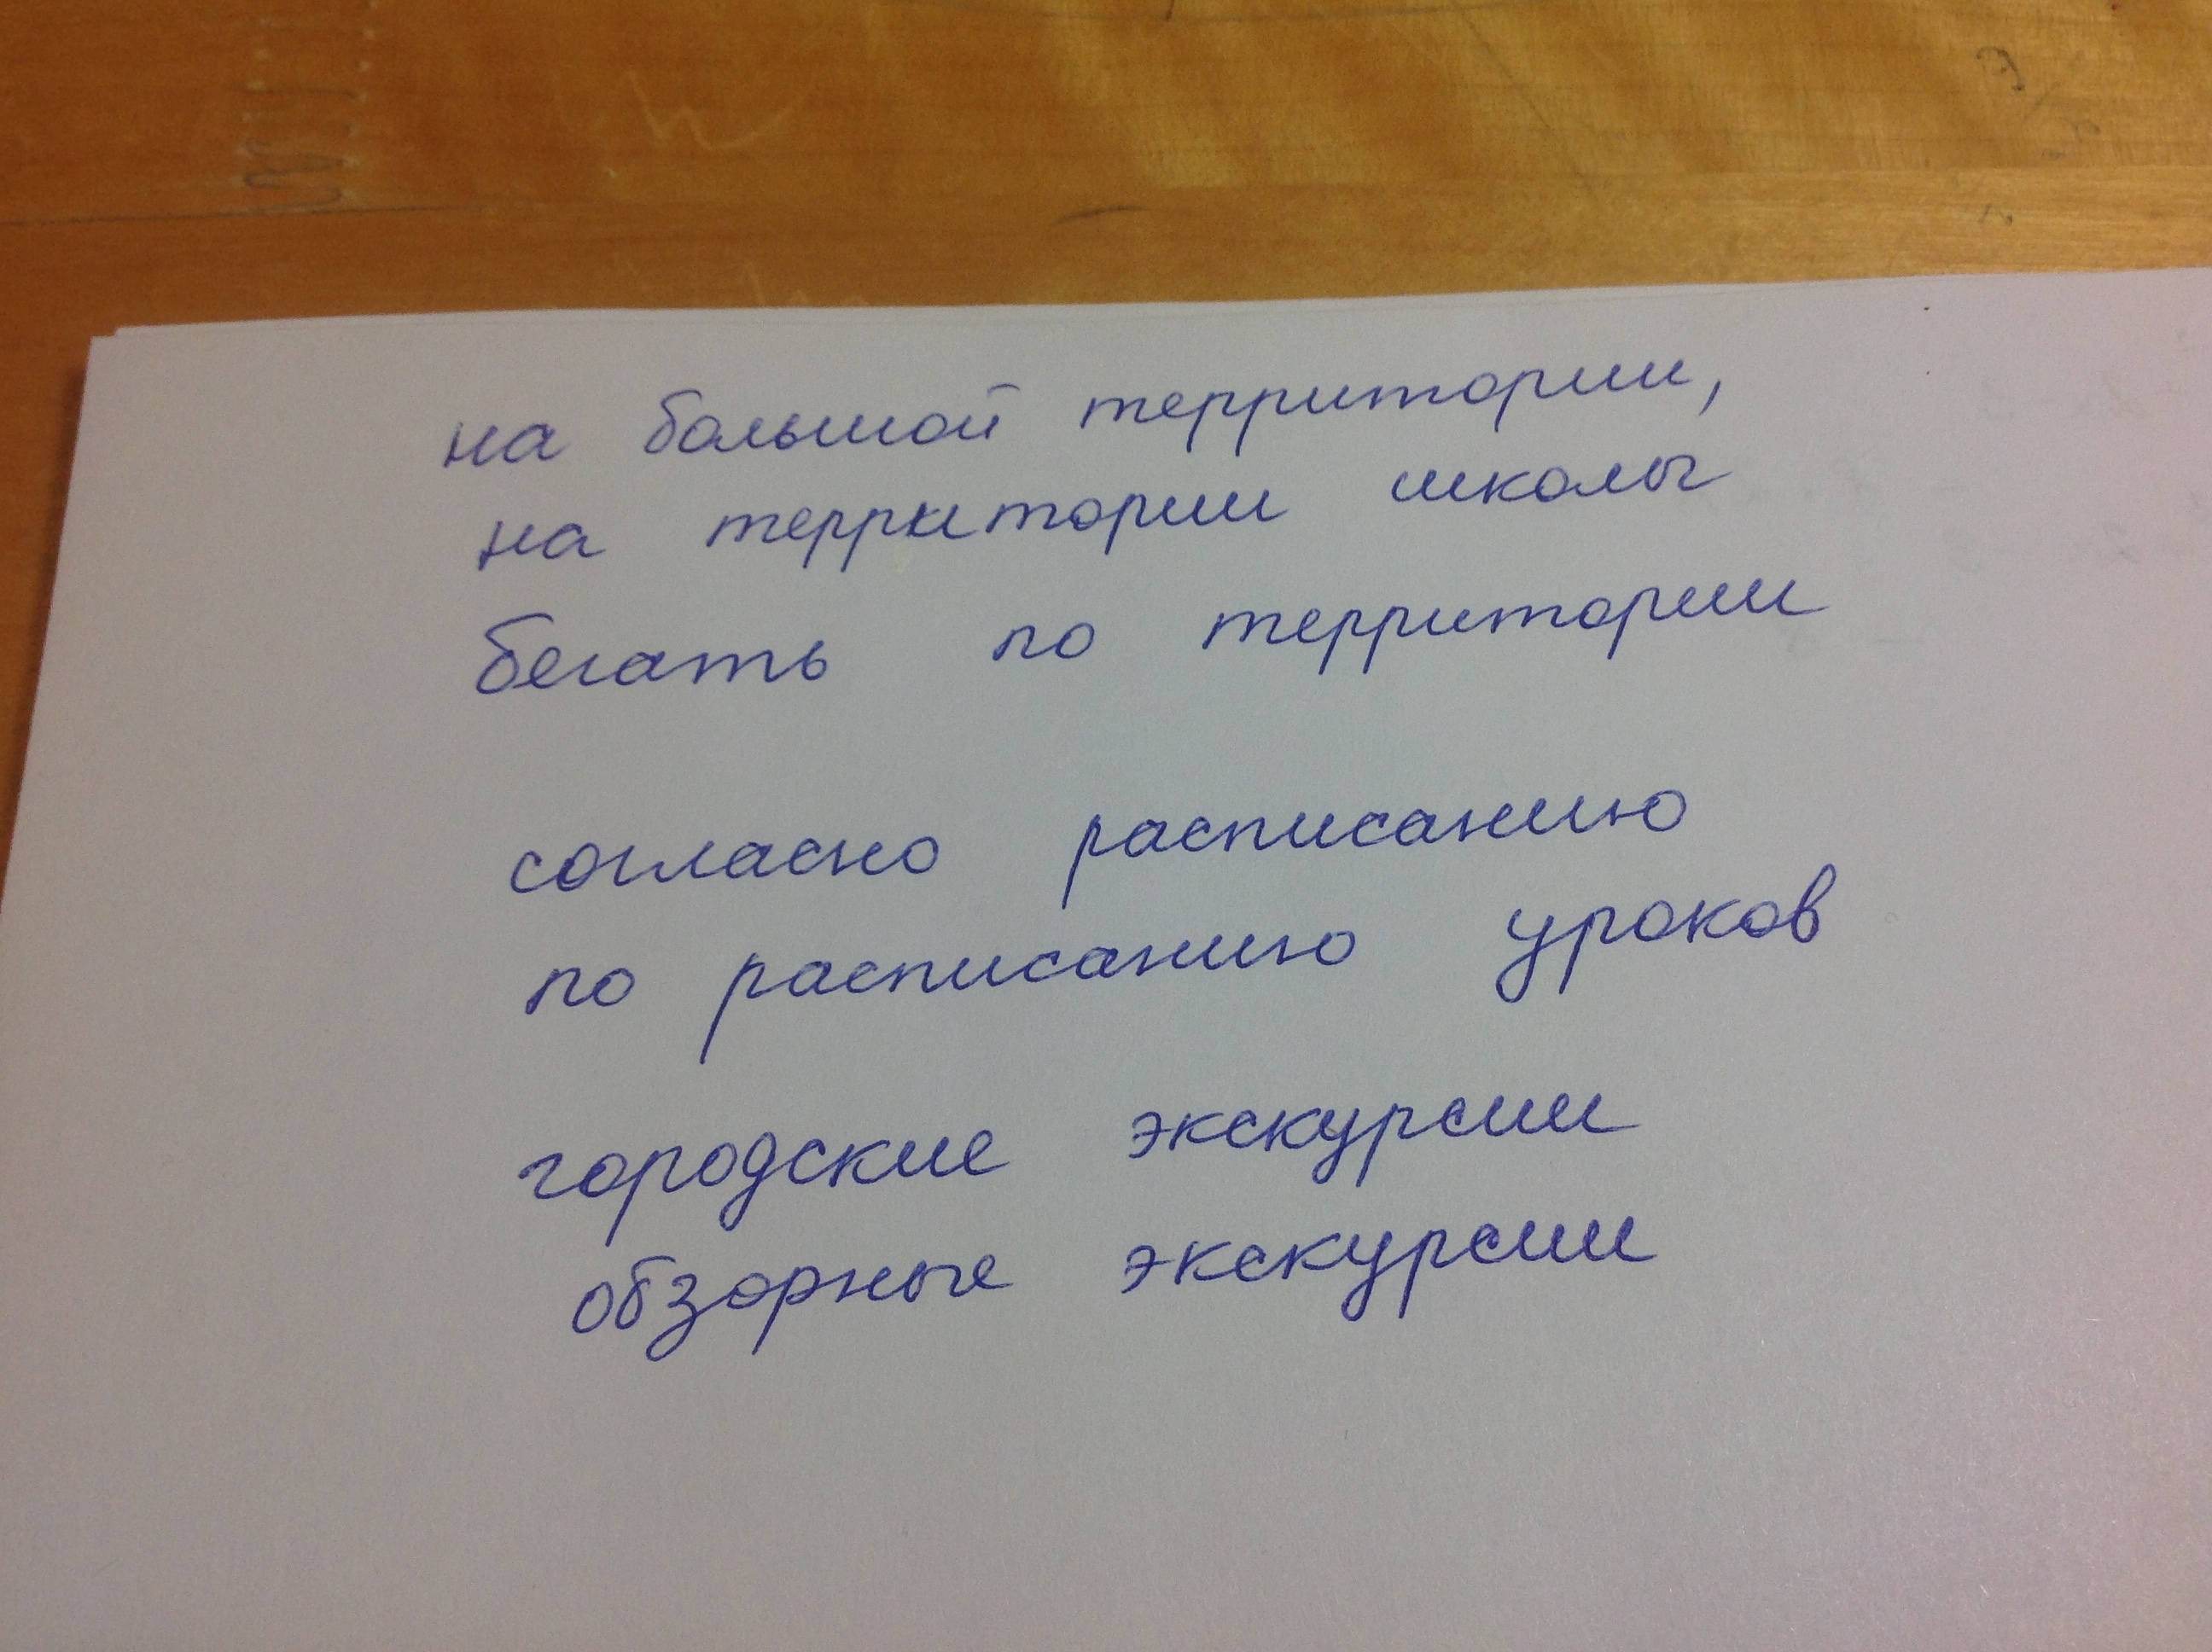 на большой территории,
на территории школы
бегать по территории
согласно расписанию
по расписанию уроков
городские экскурсии
обзорные экскурсии